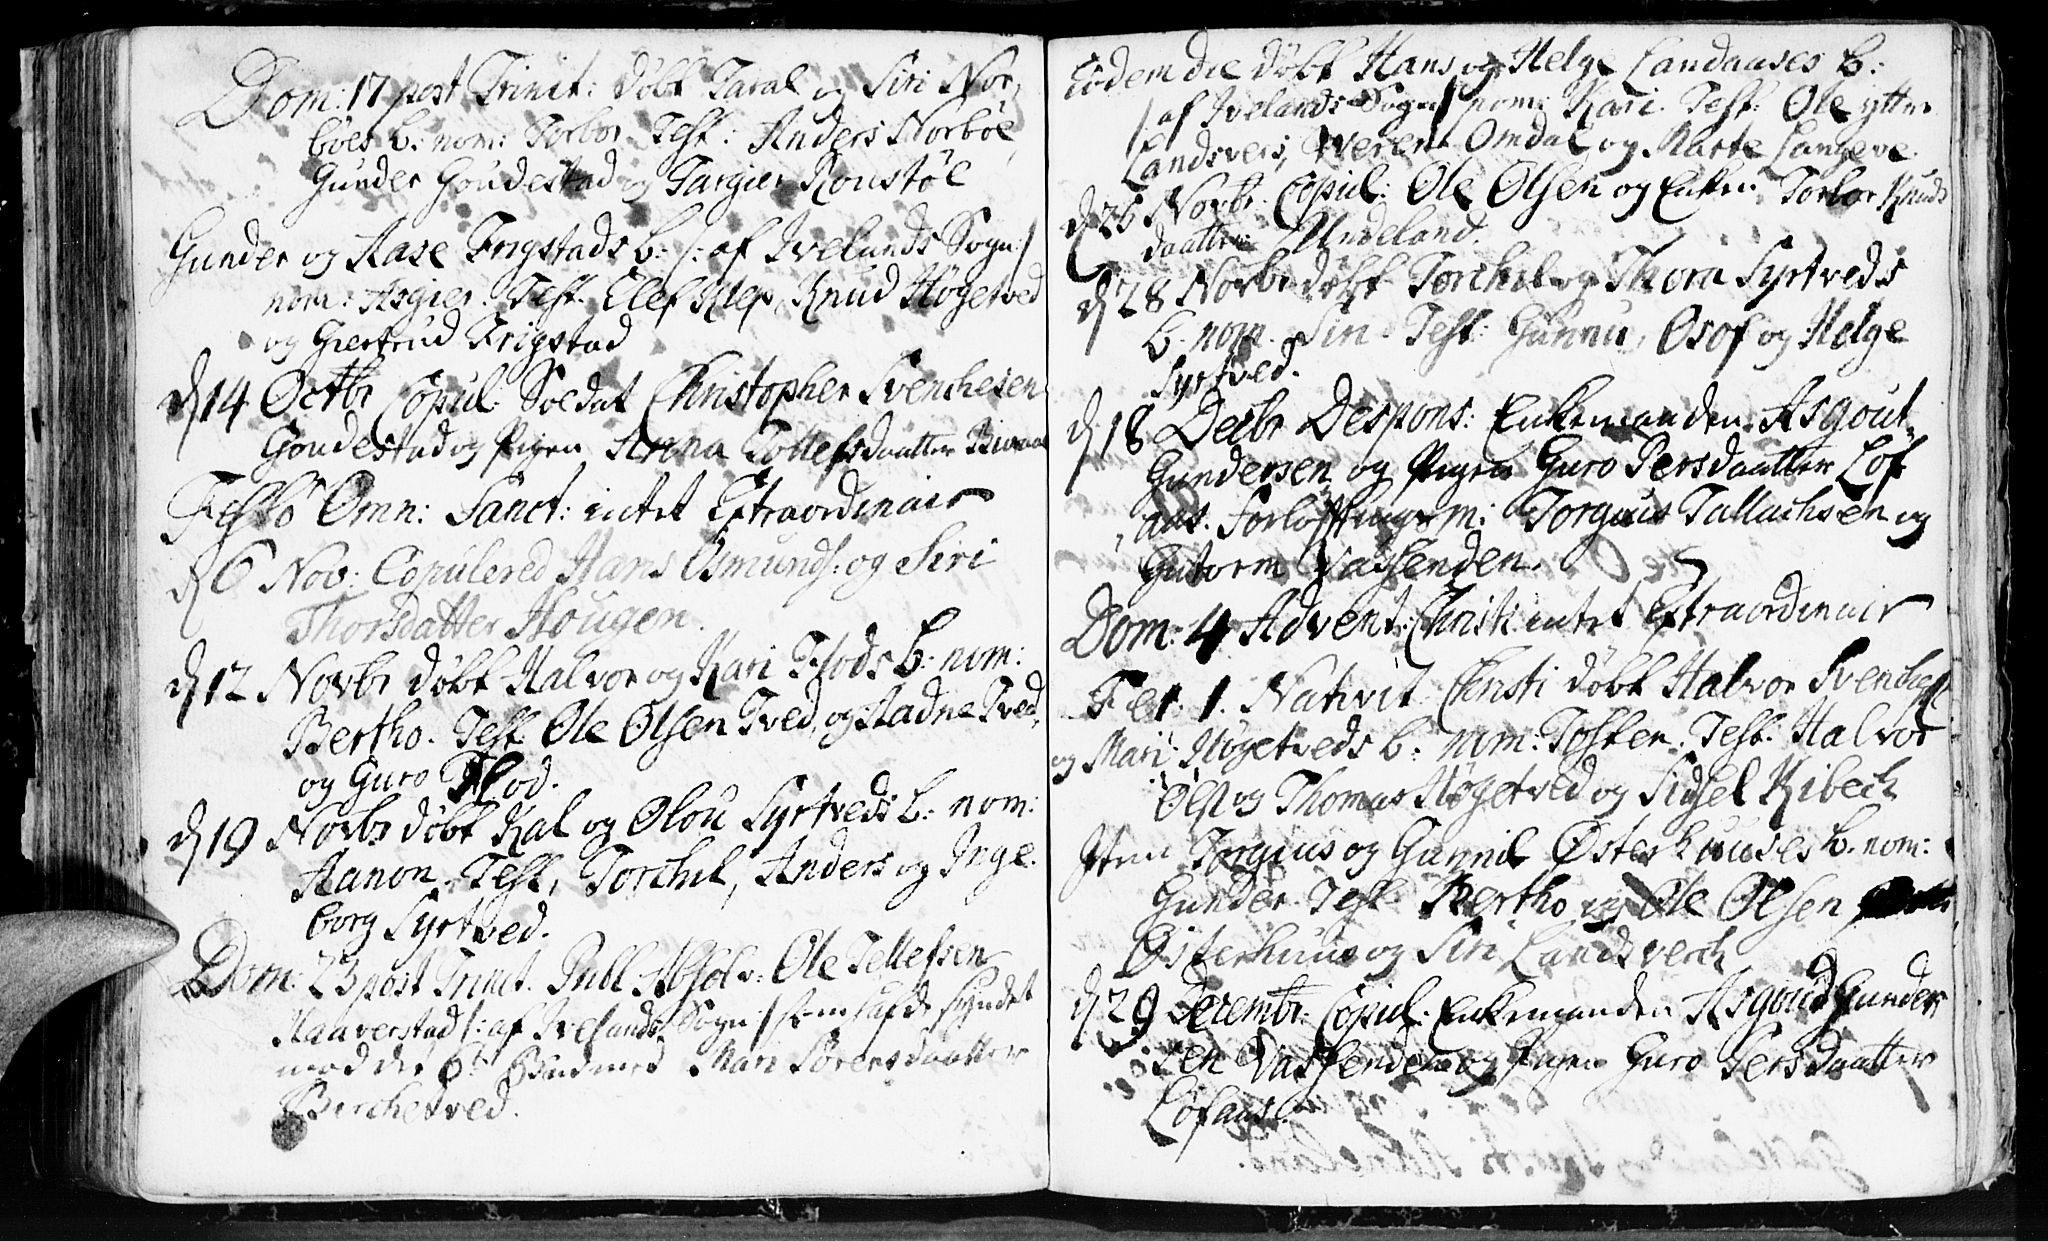 Dom: 17 post Trinit: døbt Taral og Siri Nor,
böes b: nom: Torbor. Test: Anders Norböe,
Gunder Goudestad og Targier Roustöl
Gunder og Aase Frigstads b: /: af Ivelands Sogn /
nom: Asgier. Test. Elef Klep, Knud Høgetved
og Giertrud Frigstad
d 14 Octbr Copul: Soldat Christopher Svenchesen
Goudestad og Pigen Anna Tollefsdaatter
Festo Omn: Sanct: intet Extraordinair
d 6 Nov: Copulered Hans Osmunds: og Siri
Thorsdatter Hougen.
d 12 Novbr døbt Halvor og Kari Flods b: nom:
Bertho. Test Ole Olsen Tved, og stadne Tved,
og Guro Flod.
d 19 Novbr døbt Kal og Olou Syrtveds b: nom:
Aanon. Test, Torchel, Anders og Inge
borg Syrtved.
Dom: 23 post Trinit. Publ Absolv: Ole Tellefsen
Haaverstad /: af Ivelands Sogn / som hafde syndet
mod det 6te Bud med Mari Sörensdaatter
Birchetved.
Eodem die døbt Hans og Helge Landaases b:
/: af Ivelands Sogn / nom: Kari. Test: Ole ytter
Landsvers, Omdal og Marte Langeve
d 26 Novbr. Copul: Ole Olsen og Enken Torbor Knuds
daatter Undeland.
d 28 Novbr døbt Torchel og Thora Syrtveds
b. nom. Siri. Test: Gunnu, Osof og Helge
Syrtved.
d 18 Decbr Despons: Enkemanden Asgout
Gundersen og Pigen Guro Persdaatter Löf
aas. Forlöftinger: Torgius Tallachsen og
Gutorm Vassenden.
Dom: 4 Advent: Christi intet Extraordinair
Fer: 1. Nativit Christi døbt Halvor Svenches:
og Mari Høgetveds b: nom: Tosten. Test. Halvor
Ols og Thomas Høgetved og Sidsel Ribech
Item Torgius og Gunnil Østerhuuses b. nom:
Gunder. Test. Bertho og Ole Olsen
Østerhuus og Siri Landsverch
d 29 Decembr: Copul: Enkemanden Asgoud Gunder
sen Vassenden og Pigen Guro Persdaatter
Löfaas.